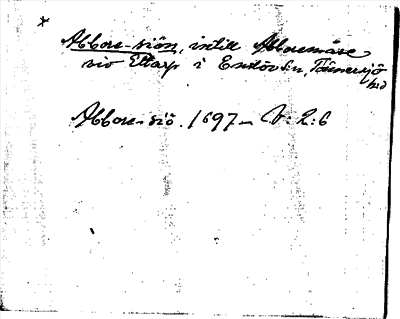 *
Abbore-siön, intill Abboremåse
vid Ettarp i Enslövs sn, Tönnersjö
hd
Abbore-siö. 1697 - V: 2:6